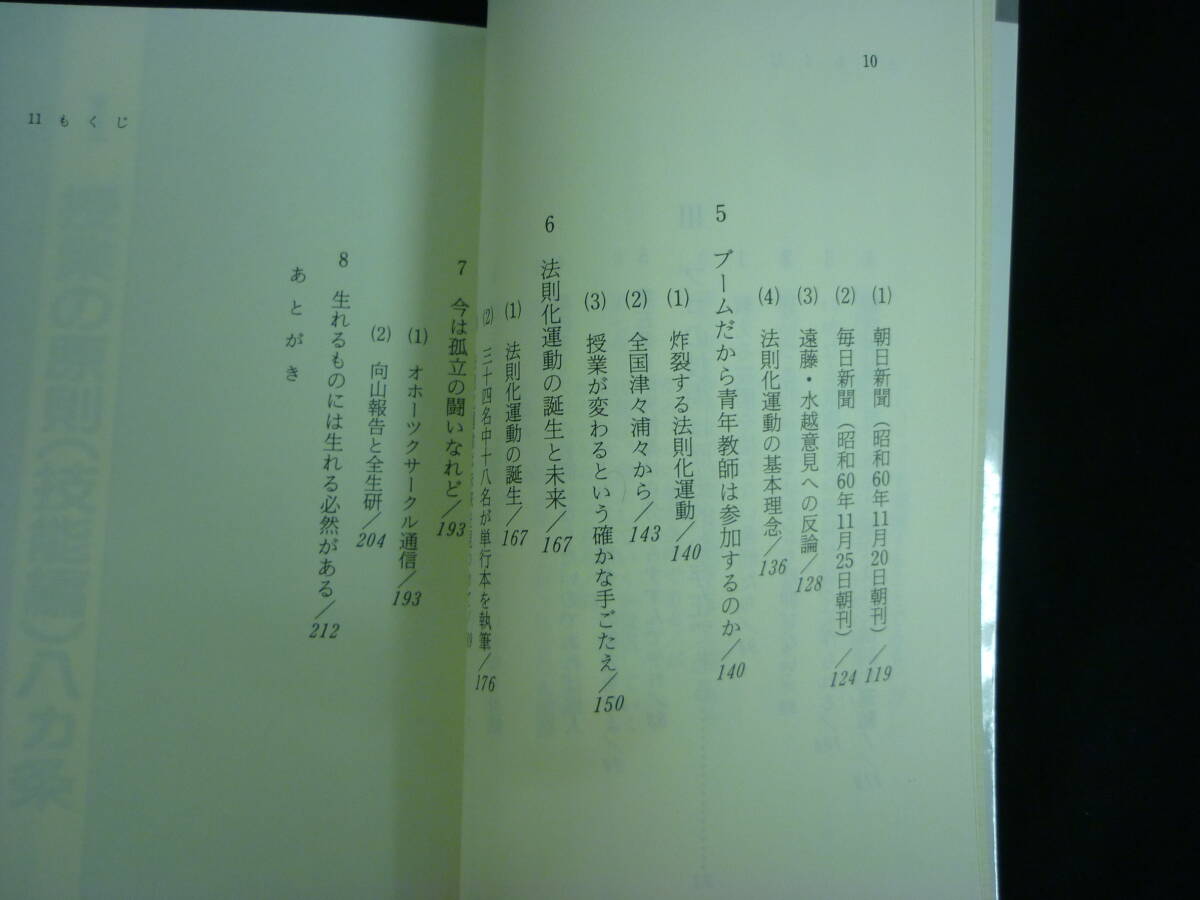 10
(1) 朝日新聞（昭和60年11月20日朝刊）／119
(2) 毎日新聞（昭和60年11月25日朝刊）／124
(3) 遠藤・水越意見への反論／128
(4) 法則化運動の基本理念／136
5 ブームだから青年教師は参加するのか／140
(1) 炸裂する法則化運動／140
(2) 全国津々浦々から／143
(3) 授業が変わるという確かな手ごたえ／150
6 法則化運動の誕生と未来／167
(1) 法則化運動の誕生／167
(2) 三十四名中十八名が単行本を執筆／176
11 もくじ
7 今は孤立の闘いなれど／193
(1) オホーツクサークル通信／193
(2) 向山報告と全生研／204
8 生れるものには生れる必然がある／212
あとがき